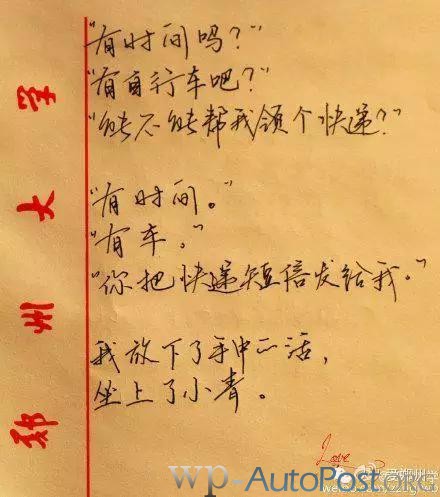 郑州大学
“有时间吗?”
“有自行车吧?”
“能不能帮我领个快递?”
“有时间。”
“有车。”
“你把快递短信发给我。”
我放下了手中的活,
坐上了小青。
Love
wp-AutoPost